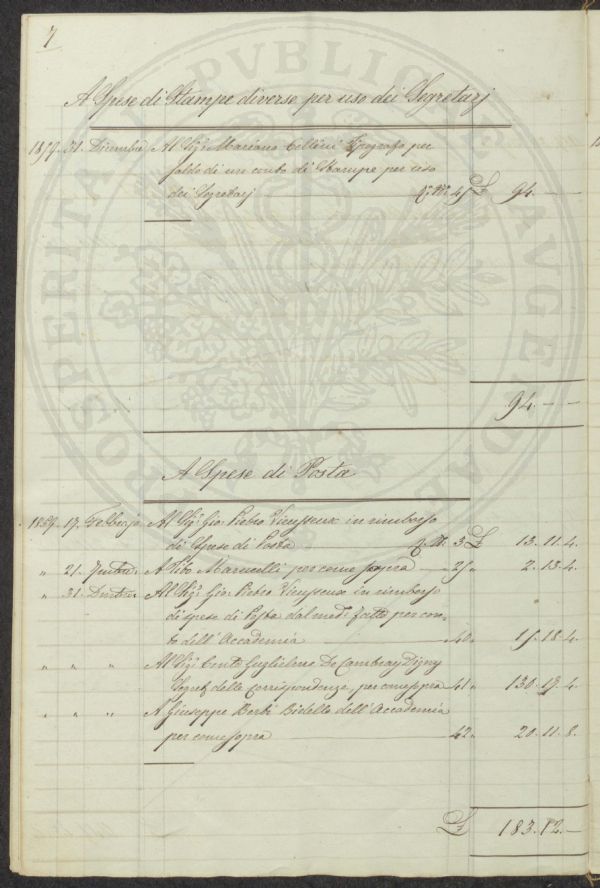 7
A Spese di Stampe diverse per uso dei Segretarj
31. Dicembre Al Sigr. Mariano Cellini Tipografo per
saldo di un conto di Stampe per uso
dei Segretarj 45 £ 94. — —
94. — —
A Spese di Posta
1859. 17. Febbrajo Al Sigr. Gio. Pietro Vieusseux in rimborso
di Spese di Posta 3 £ 13. 11. 4.
„ 21. A Tito Marucelli per come sopra — 25 „ 2. 13. 4.
„ 31. Al Sigr. Gio. Pietro Vieusseux in rimborso
di spese di Posta dal med. fatte per con-
to dell'Accademia — 40 „ 15. 18. 4.
„ „ „ Al Sigr. Conte Guglielmo De Cambray Digny
Segret. delle corrispondenze, per come sopra 41 „ 130. 17. 4.
„ „ „ A Giuseppe Berti Bidello dell'Accademia
per come sopra — 42 „ 20. 11. 8.
£ 183. 12. —
PROSPERITATI PVBLICAE AVGENDAE